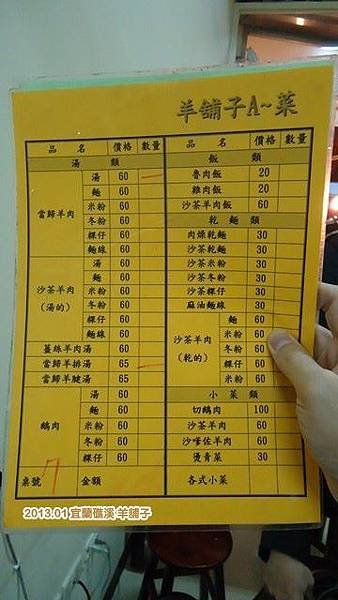 羊舖子A~菜
品 名 價格 數量
湯 類
當歸羊肉
湯 60
麵 60
米粉 60
冬粉 60
粿仔 60
麵線 60
沙茶羊肉
(湯的)
湯 60
麵 60
米粉 60
冬粉 60
粿仔 60
麵線 60
薑絲羊肉湯 60
當歸羊排湯 65
當歸羊腱湯 65
鵝肉
湯 60
麵 60
米粉 60
冬粉 60
粿仔 60
桌號 金額
品 名 價格 數量
飯 類
魯肉飯 20
雞肉飯 20
沙茶羊肉飯 60
乾 麵 類
肉燥乾麵 30
沙茶乾麵 30
沙茶米粉 30
沙茶冬粉 30
沙茶粿仔 30
麻油麵線 30
沙茶羊肉
(乾的)
麵 60
米粉 60
冬粉 60
粿仔 60
米粉 60
小 菜 類
切鵝肉 100
沙茶羊肉 60
沙嗲佐羊肉 60
燙青菜 30
各式小菜
2013.01 宜蘭礁溪 羊舖子